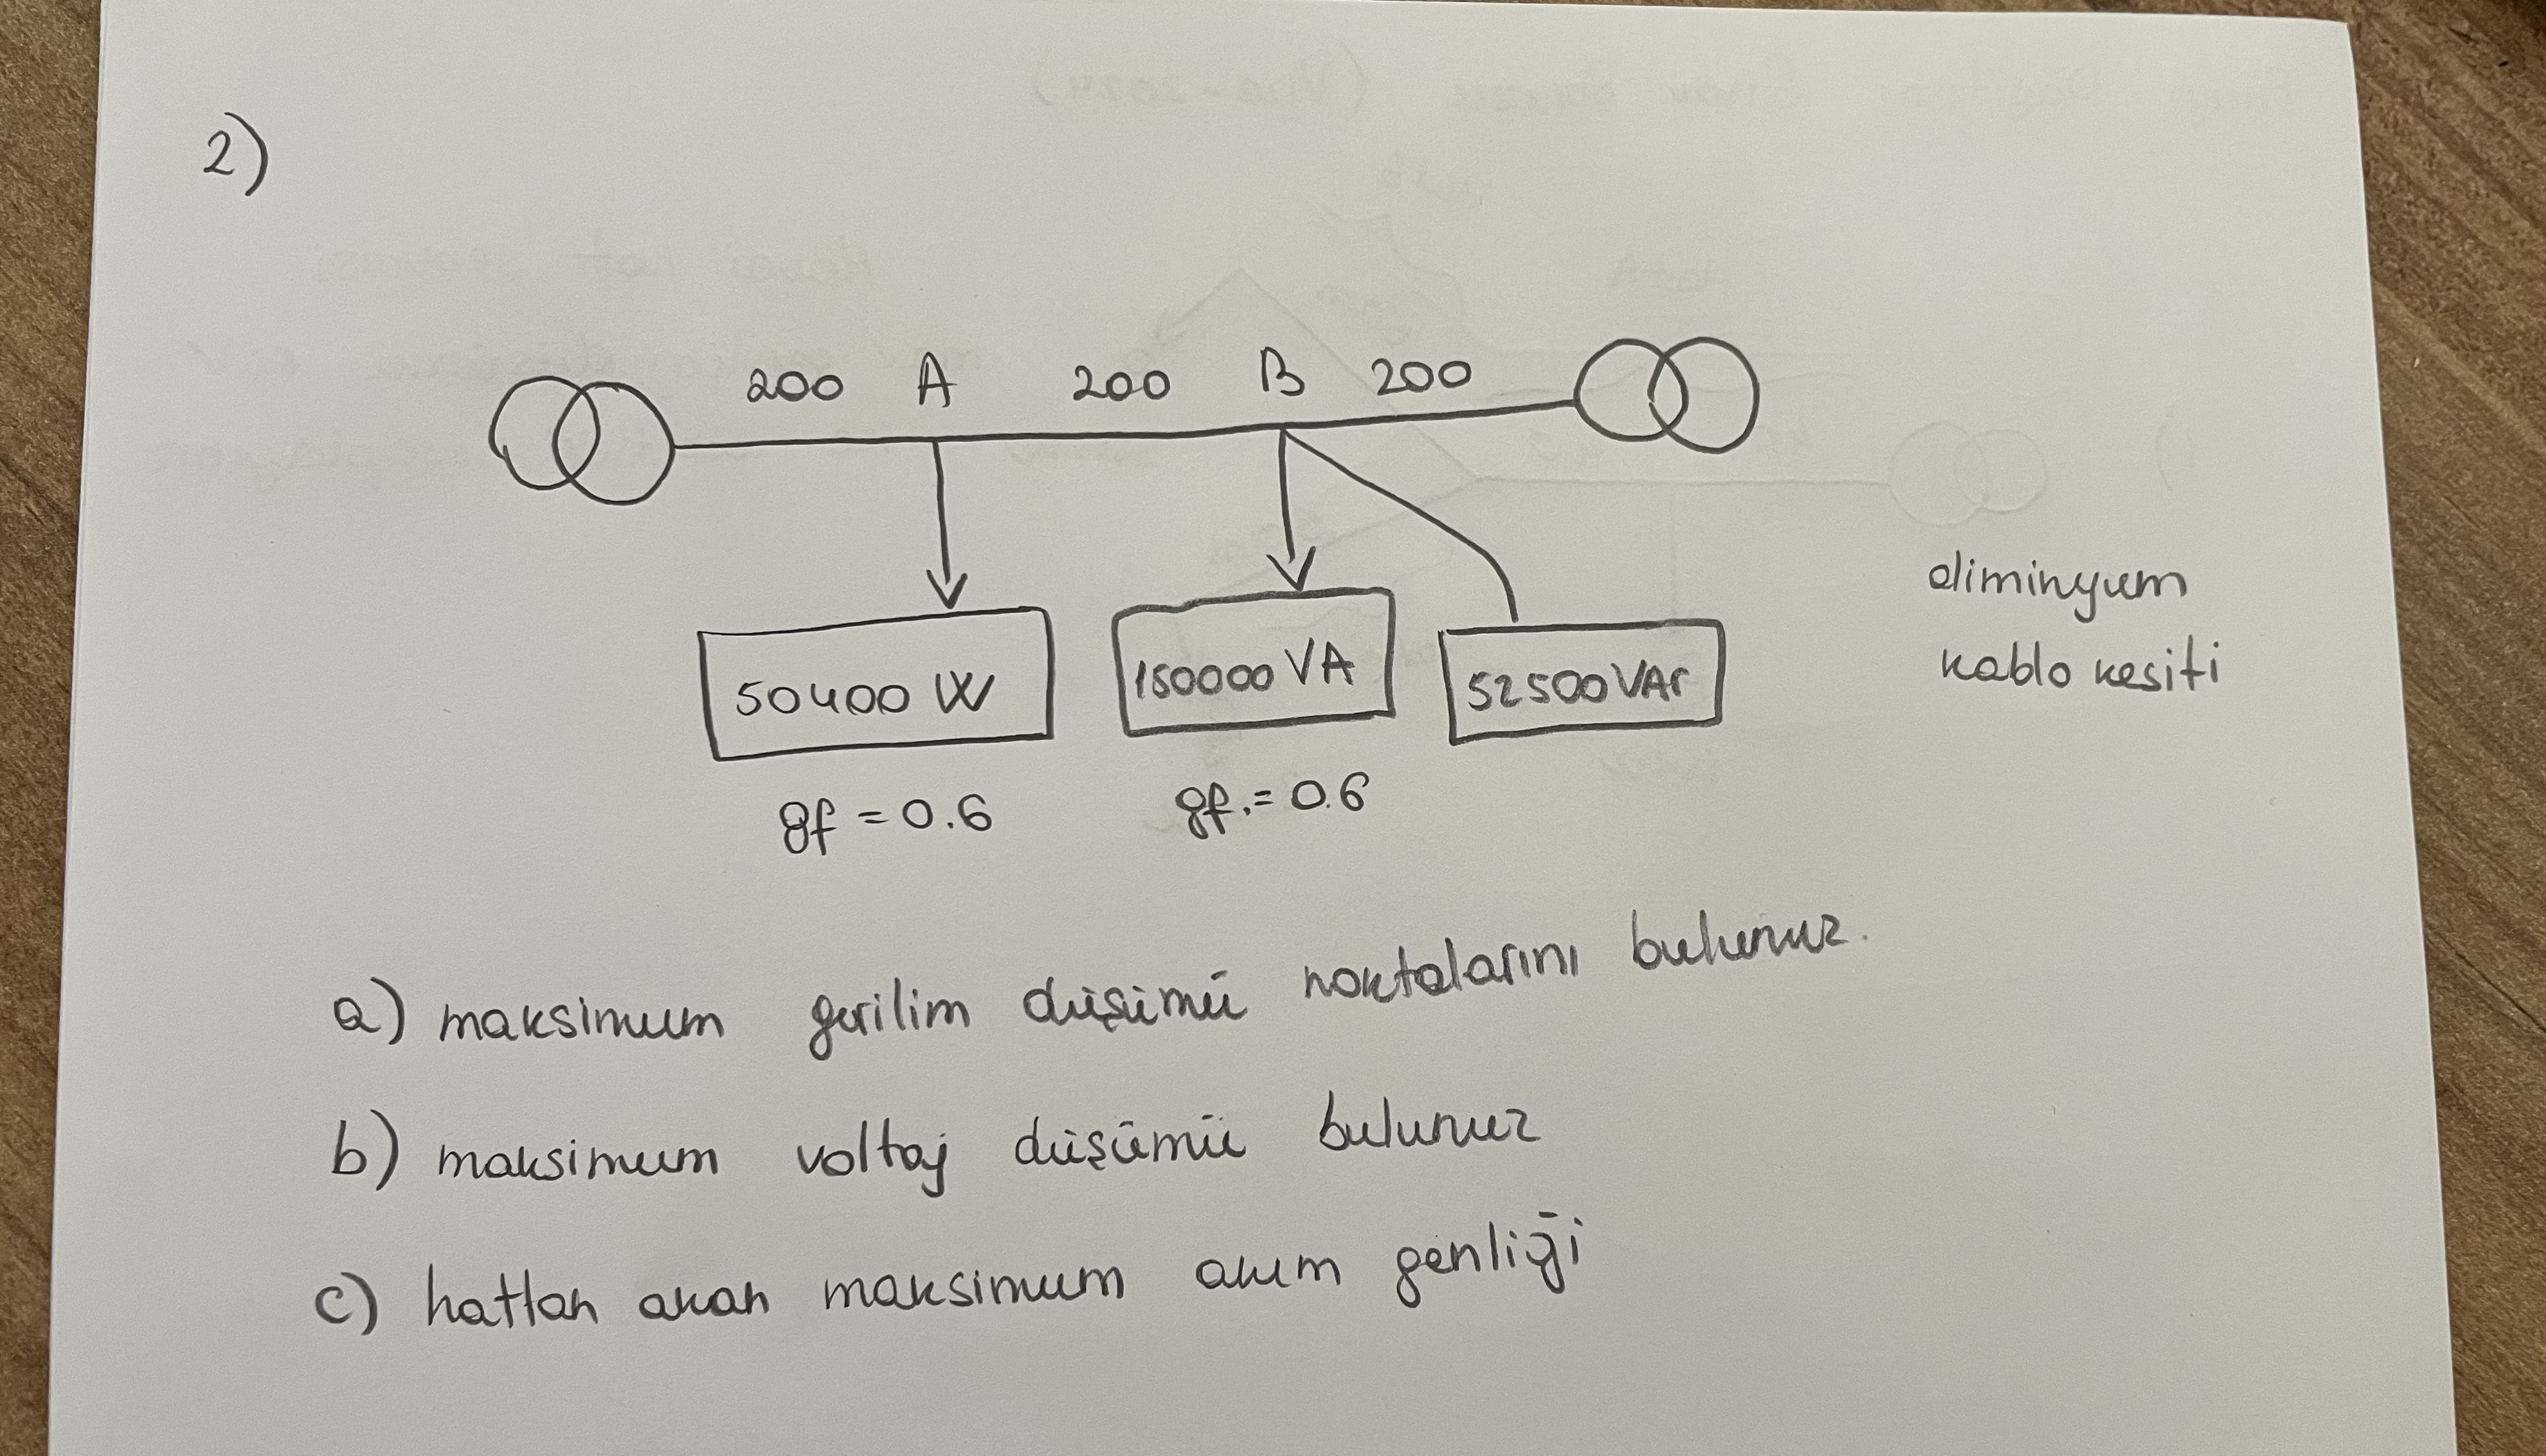 2)
200 A 200 B 200
50400 W
150000 VA
52500 VAr
aliminyum
kablo kesiti
gf = 0.6
gf. = 0.6
a) maksimum gerilim düşümü noktalarını bulunuz.
b) maksimum voltaj düşümü bulunuz
c) hattan akan maksimum akım genliği